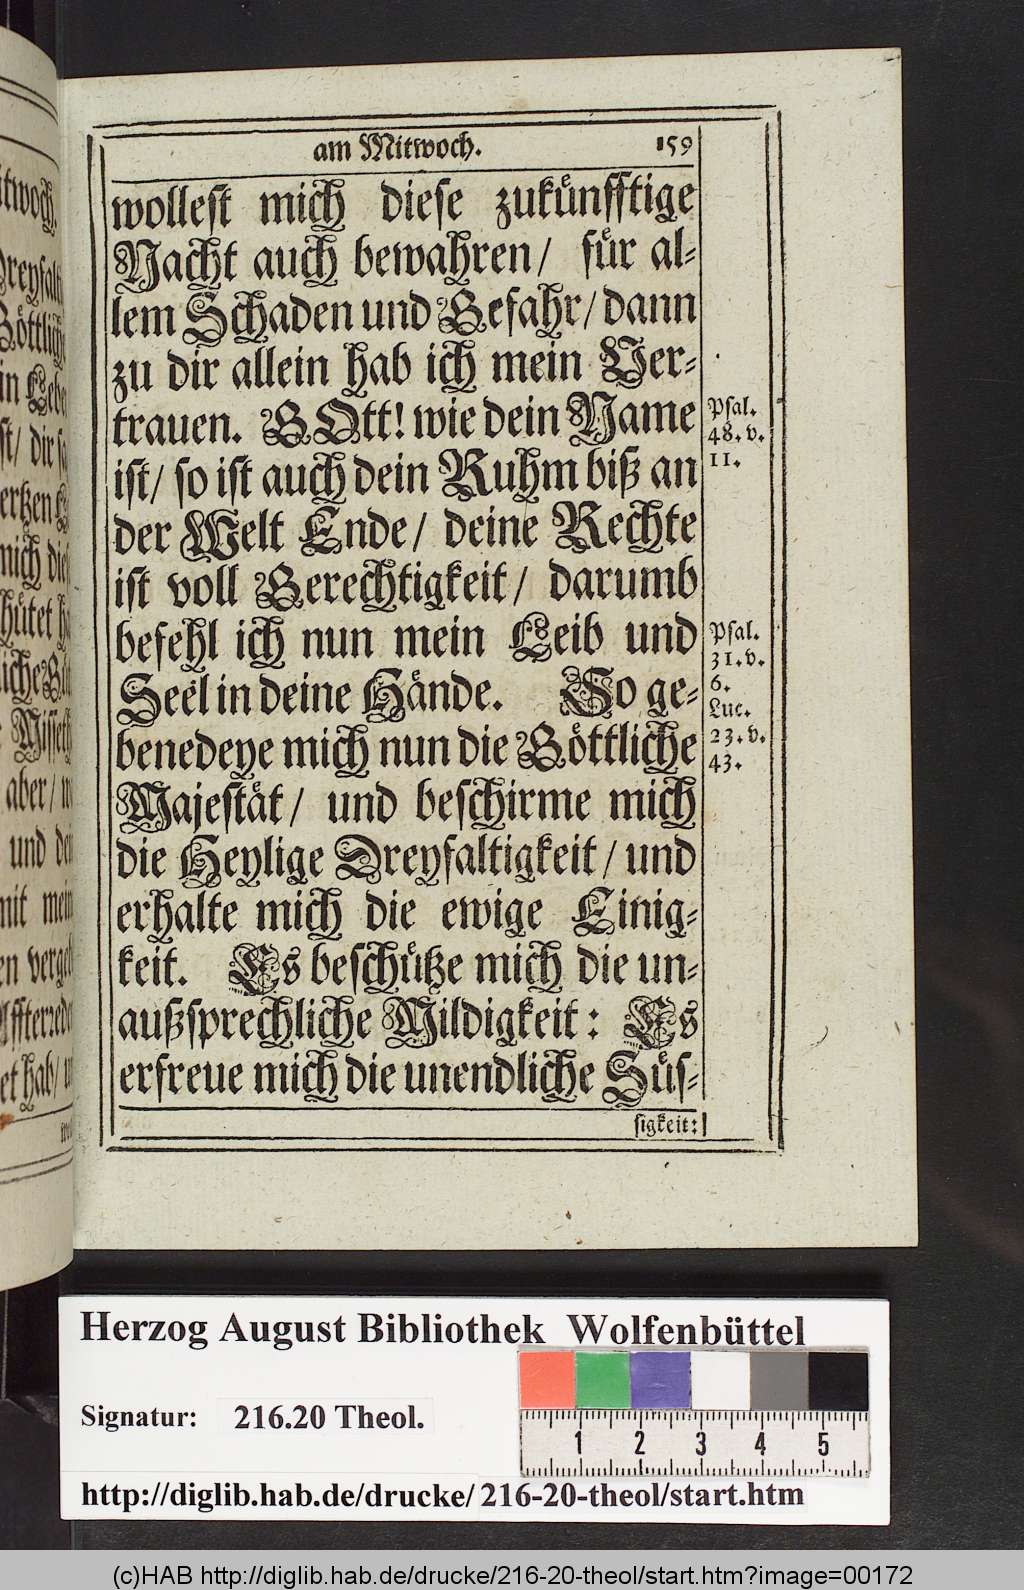 am Mitwoch. 159
wollest mich diese zukünfftige
Nacht auch bewahren/ für al-
lem Schaden und Gefahr/ dann
zu dir allein hab ich mein Ver-
trauen. GOtt! wie dein Name
ist/ so ist auch dein Ruhm biß an
der Welt Ende/ deine Rechte
ist voll Gerechtigkeit/ darumb
befehl ich nun mein Leib und
Seel in deine Hände. So ge-
benedeye mich nun die Göttliche
Majestät/ und beschirme mich
die Heylige Dreyfaltigkeit/ und
erhalte mich die ewige Einig-
keit. Es beschütze mich die un-
außsprechliche Mildigkeit: Es
erfreue mich die unendliche Süs-
sigkeit:
Psal.
48. v.
11.
Psal.
31. v.
6.
Luc.
23. v.
43.
Herzog August Bibliothek Wolfenbüttel
Signatur: 216.20 Theol.
1 2 3 4 5
http://diglib.hab.de/drucke/216-20-theol/start.htm
(c)HAB http://diglib.hab.de/drucke/216-20-theol/start.htm?image=00172